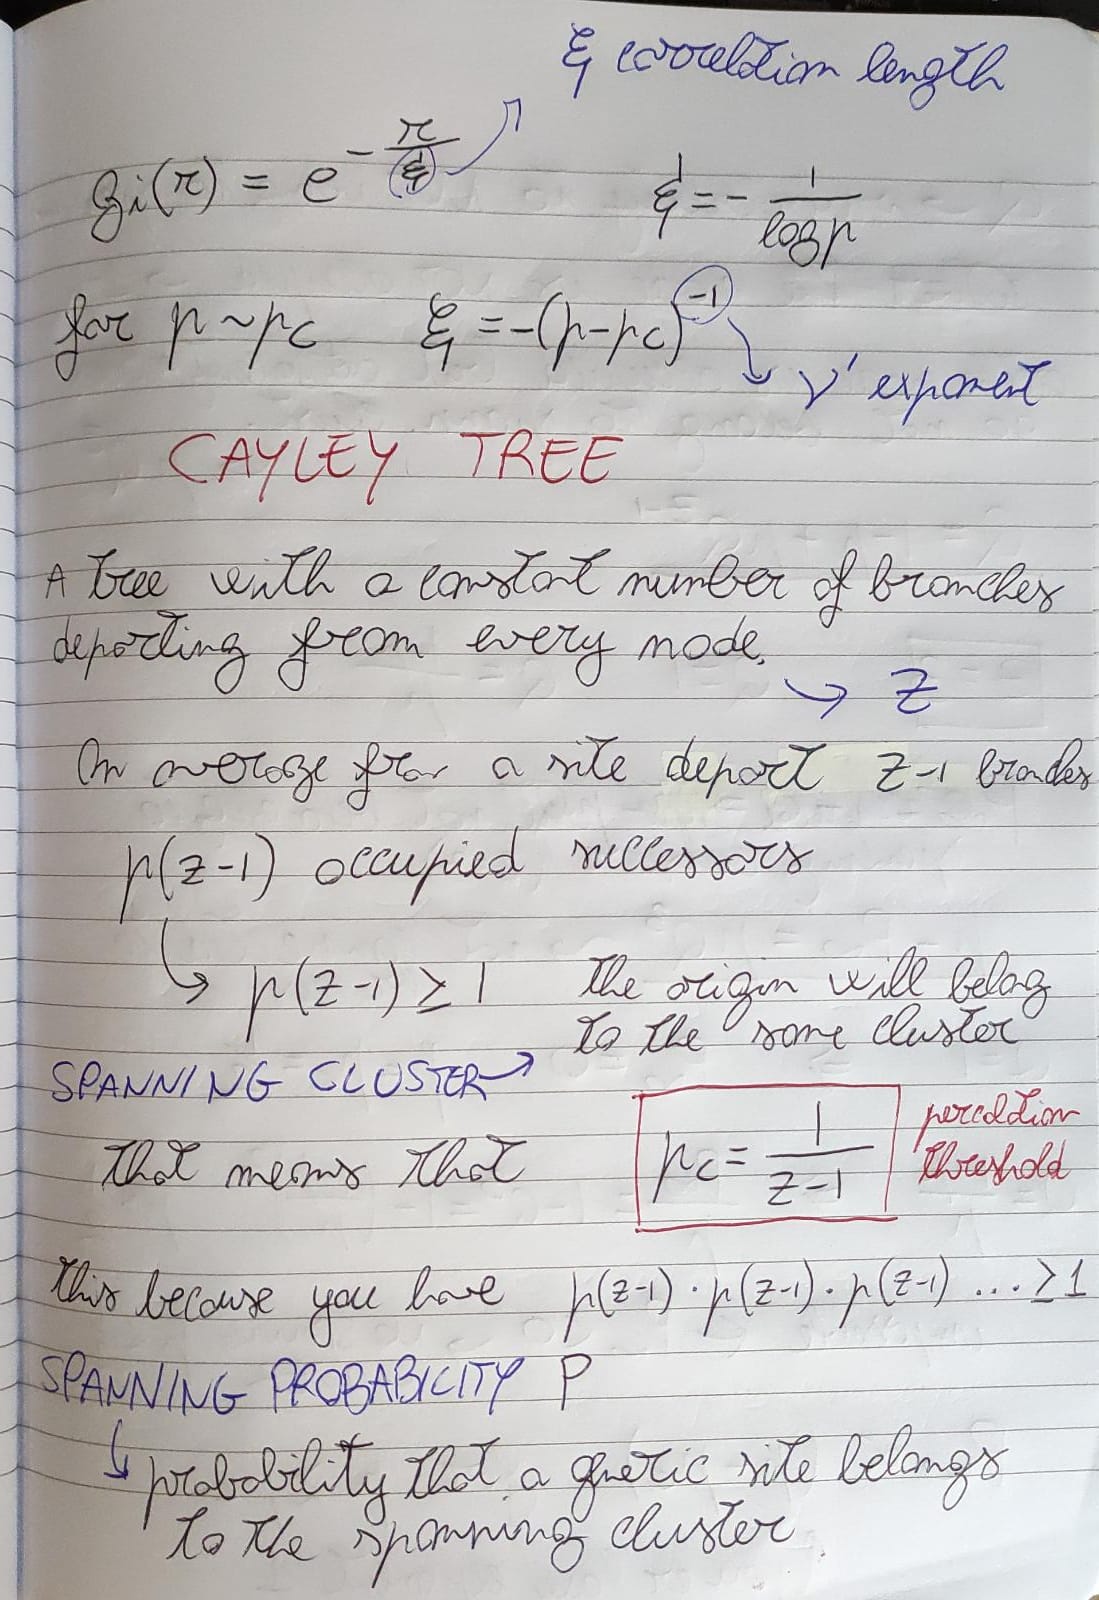 ξ correlation length
gi(r) = e^{-r/ξ} ξ = - 1/log p
for p ~ pc ξ = -(p-pc)^{-1}
ν' exponent
CAYLEY TREE
A tree with a constant number of branches
departing from every node.
→ Z
On average from a site depart z-1 branches
p(z-1) occupied successors
→ p(z-1) ≥ 1 the origin will belong
to the same cluster
SPANNING CLUSTER →
that means that pc = 1/(z-1) percolation
threshold
this because you have p(z-1) · p(z-1) · p(z-1) ... ≥ 1
SPANNING PROBABILITY P
probability that a generic site belongs
to the spanning cluster